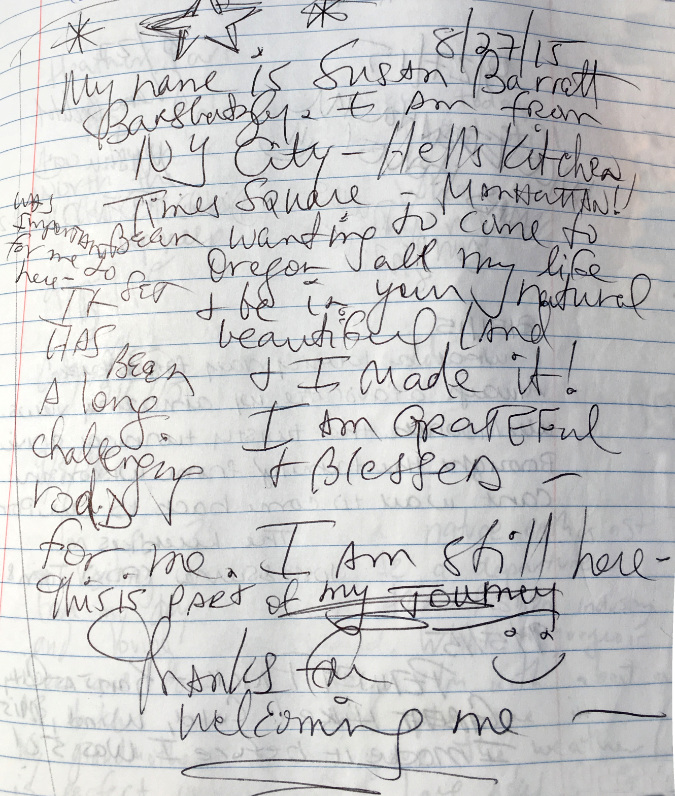 8/27/15
My name is Susan Barrett
I Am from
NY City - Hell's Kitchen
Times Square - MANHATTAN!!
Been wanting to come to
Oregon all my life
& be in your natural
beautiful LAND
& I Made it!
I Am GRATEFul
& BlesseD -
WAS
ImportANt
for me to
here -
It
HAS BEEN
A long
challenging
roAD
for me. I Am still here -
This is PARt of my Journey
ThANks for
welcoming me -